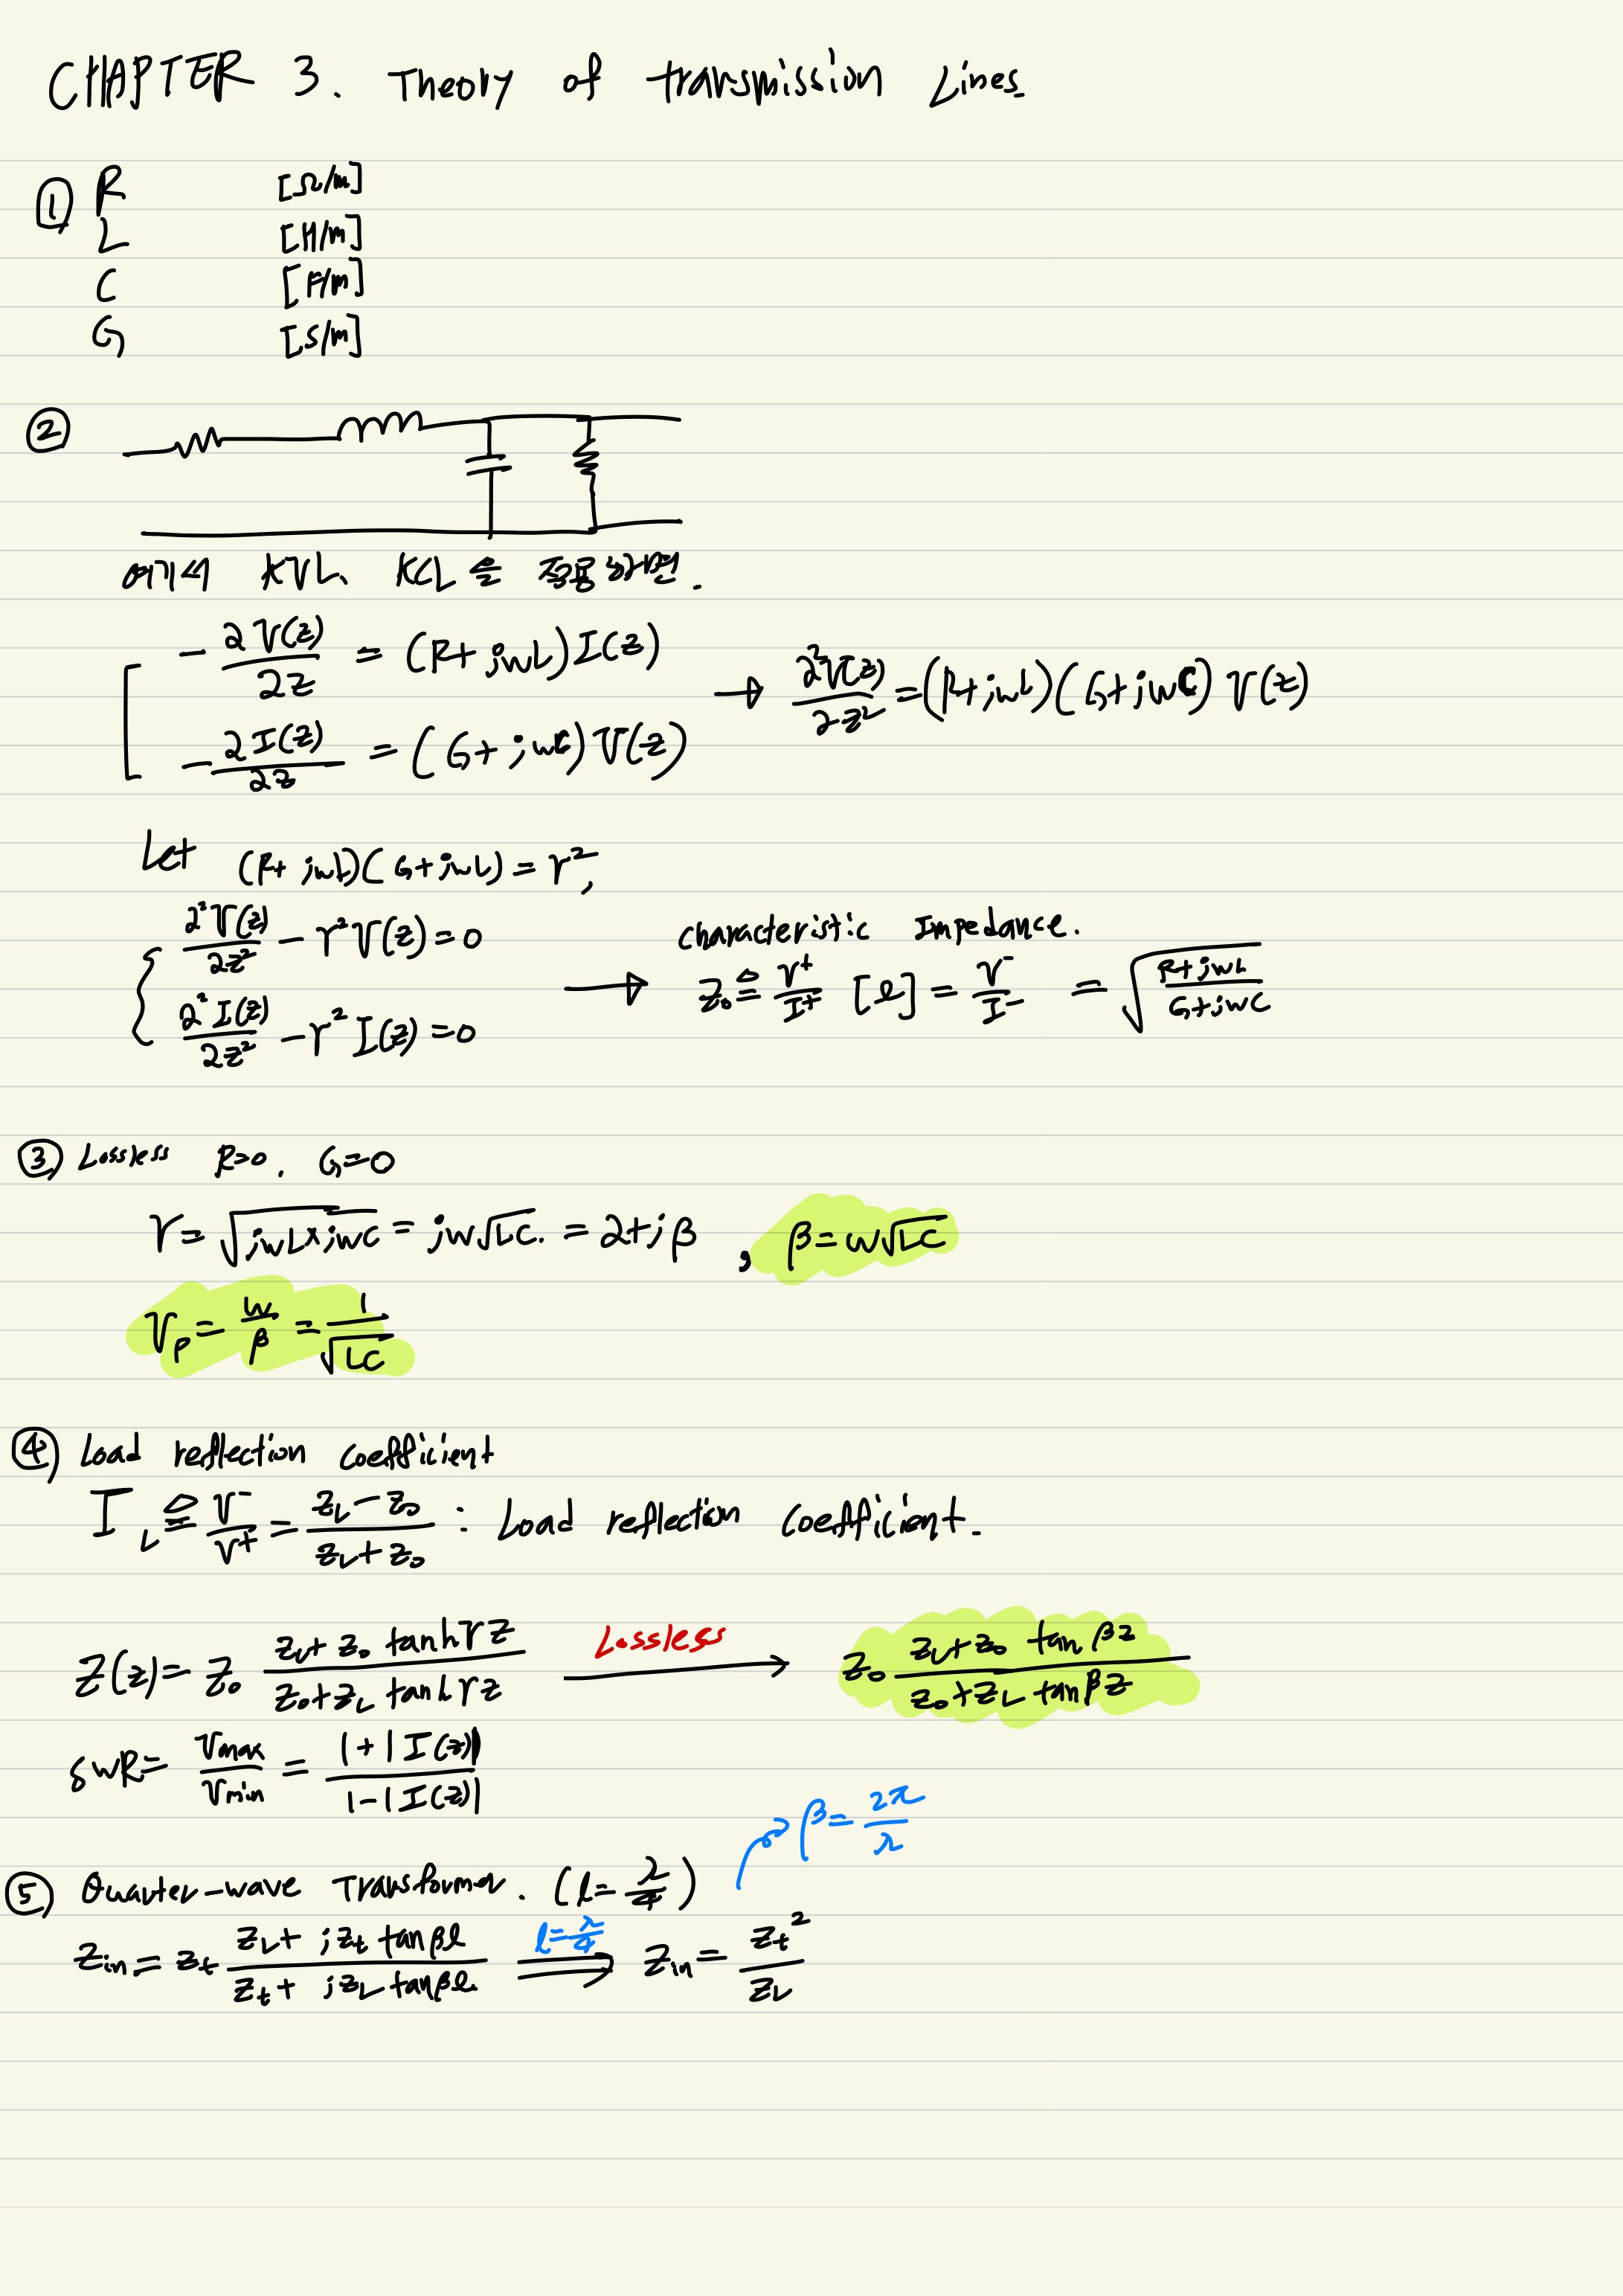 CHAPTER 3. Theory of transmission Lines
① R [Ω/m]
L [H/m]
C [F/m]
G [S/m]
②
여기서 KVL, KCL을 적용하면.
- ∂V(z)/∂z = (R+jωL)I(z)
- ∂I(z)/∂z = (G+jωC)V(z)
→ ∂²V(z)/∂z² = (R+jωL)(G+jωC)V(z)
Let (R+jωL)(G+jωL) = γ²,
∂²V(z)/∂z² - γ²V(z) = 0
∂²I(z)/∂z² - γ²I(z) = 0
→ characteristic Impedance.
Z₀ ≜ V⁺/I⁺ [Ω] = V⁻/I⁻ = √((R+jωL)/(G+jωC))
③ Lossless R=0, G=0
γ = √(jωL×jωC) = jω√LC. = α+jβ , β=ω√LC
Vp = ω/β = 1/√LC
④ Load reflection coefficient
Γ_L ≜ V⁻/V⁺ = (Z_L-Z₀)/(Z_L+Z₀) : Load reflection coefficient.
Z(z) = Z₀ (Z_L+Z₀ tanh γz)/(Z₀+Z_L tanh γz) Lossless → Z₀ (Z_L+Z₀ tan βz)/(Z₀+Z_L tan βz)
SWR = Vmax/Vmin = (1+|Γ(z)|)/(1-|Γ(z)|)
β = 2π/λ
⑤ Quarter-wave Transformer. (l=λ/4)
Zin = Zt (Z_L + jZt tanβl)/(Zt + jZ_L tanβl) l=λ/4 ⇒ Zin = Zt²/Z_L